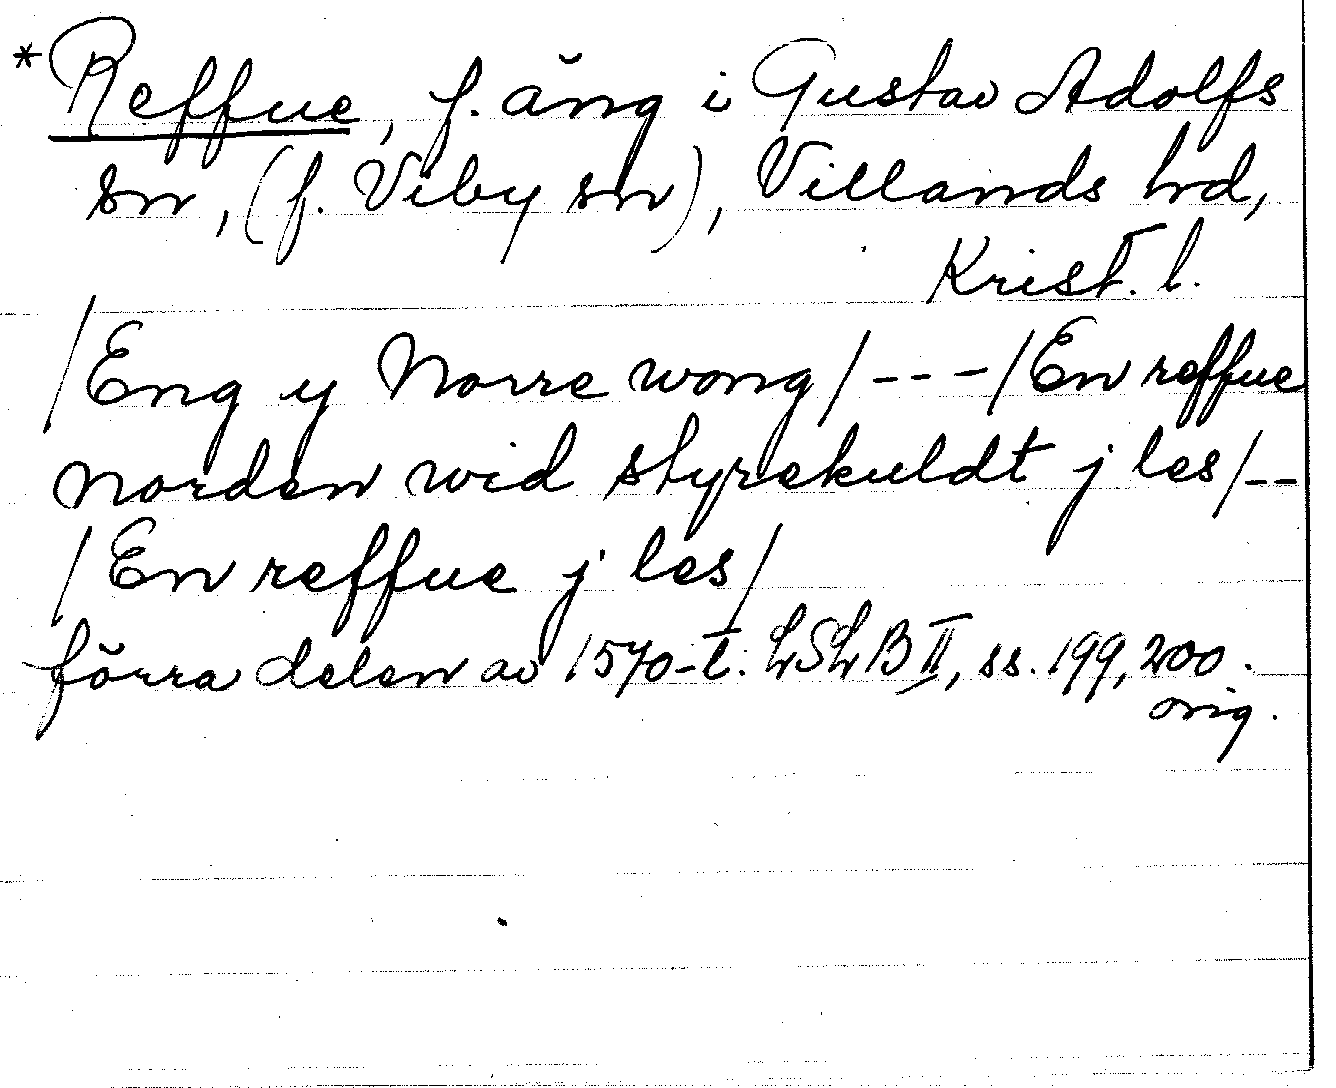 *Reffue, f. äng i Gustav Adolfs
sn, (f. Viby sn), Villands hrd,
Krist. l.
/Eng y Norre wong/---/En reffue
norden wid styrekuldt j les/--
/En reffue j les/
förra delen av 1570-t. LSLB II, ss. 199, 200.
orig.